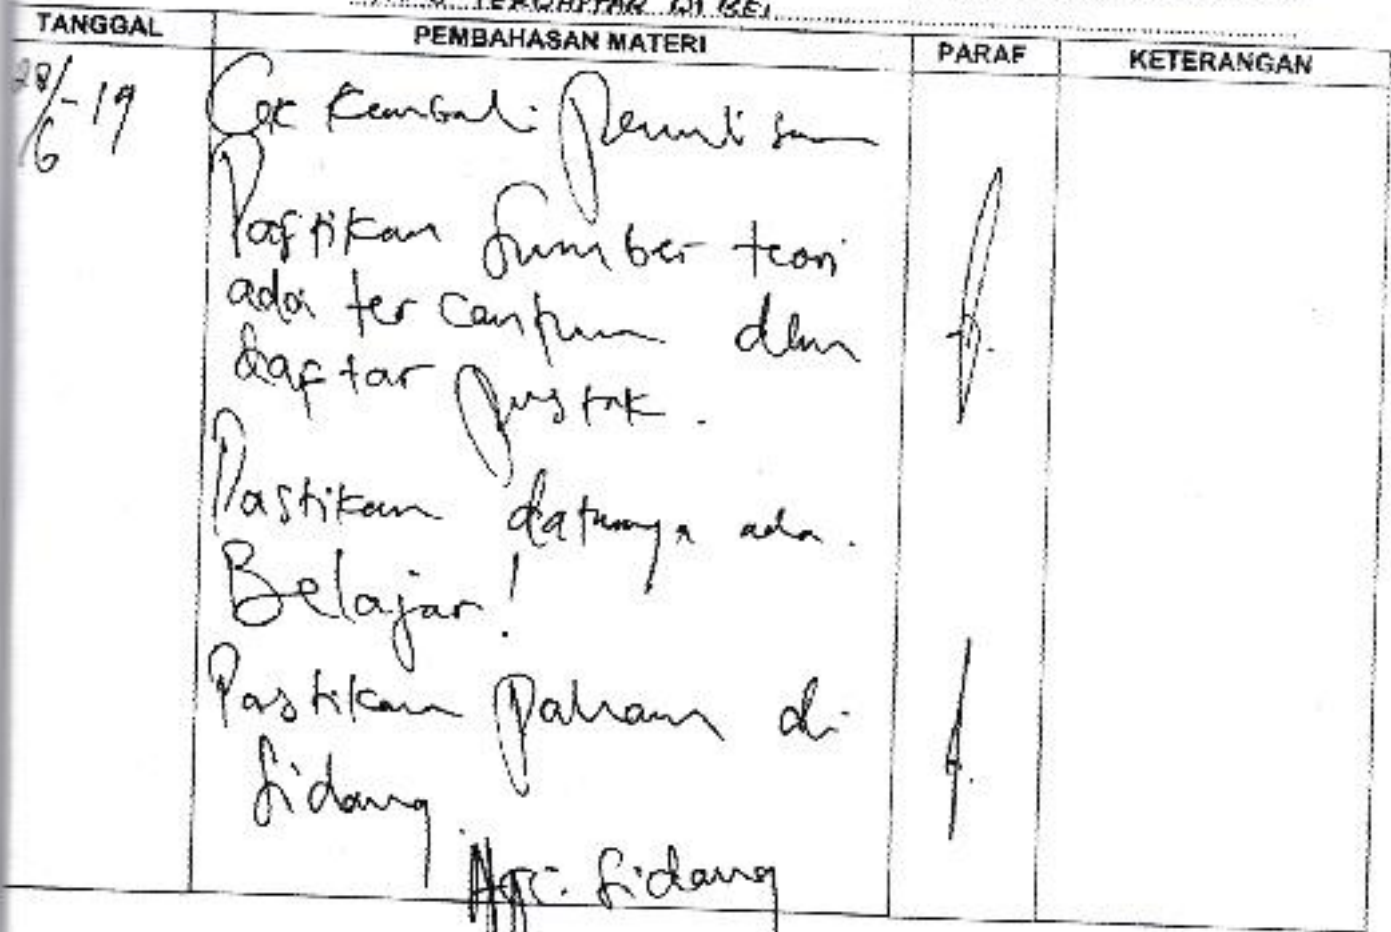 TERDAFTAR DI BEI
TANGGAL PEMBAHASAN MATERI PARAF KETERANGAN
28/6-19 Cek Kembali penulisan
Pastikan Sumber teori
ada tercantum dlm
daftar pustak.
Pastikan datanya ada.
Belajar!
Pastikan paham di
Sidang
Acc. Sidang